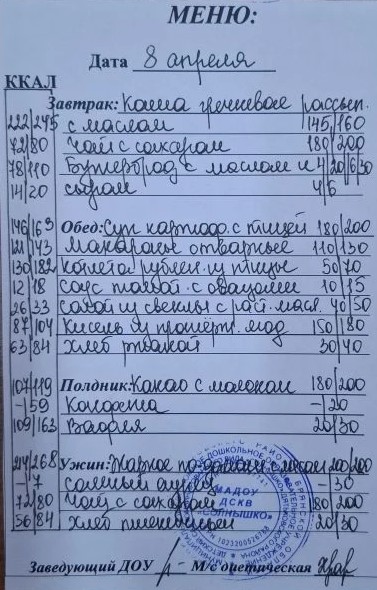 МЕНЮ:
Дата 8 апреля
ККАЛ
Завтрак: Каша гречневая рассып.
222/245 с маслом 145/160
72/80 Чай с сахаром 180/200
78/110 Бутерброд с маслом и 4/20 6/30
14/20 сыром 4/6
146/163 Обед: Суп картоф. с птицей 180/200
121/143 Макароны отварные 110/130
130/182 Котлета рублен. из птицы 50/70
12/18 Соус томат. с овощами 10/15
26/33 Салат из свеклы с раст. масл. 40/50
87/104 Кисель из 150/180
63/84 Хлеб ржаной 30/40
107/119 Полдник: Какао с молоком 180/200
-/59 Конфета -/20
109/163 Вафля 20/30
214/268 Ужин: Жаркое по-домашн. 200/200
-/7 соленый огурец -/30
72/80 Чай с сахаром 180/200
56/84 Хлеб пшеничный 20/30
МАДОУ
ДСКВ
«СОЛНЫШКО»
Заведующий ДОУ М/с диетическая